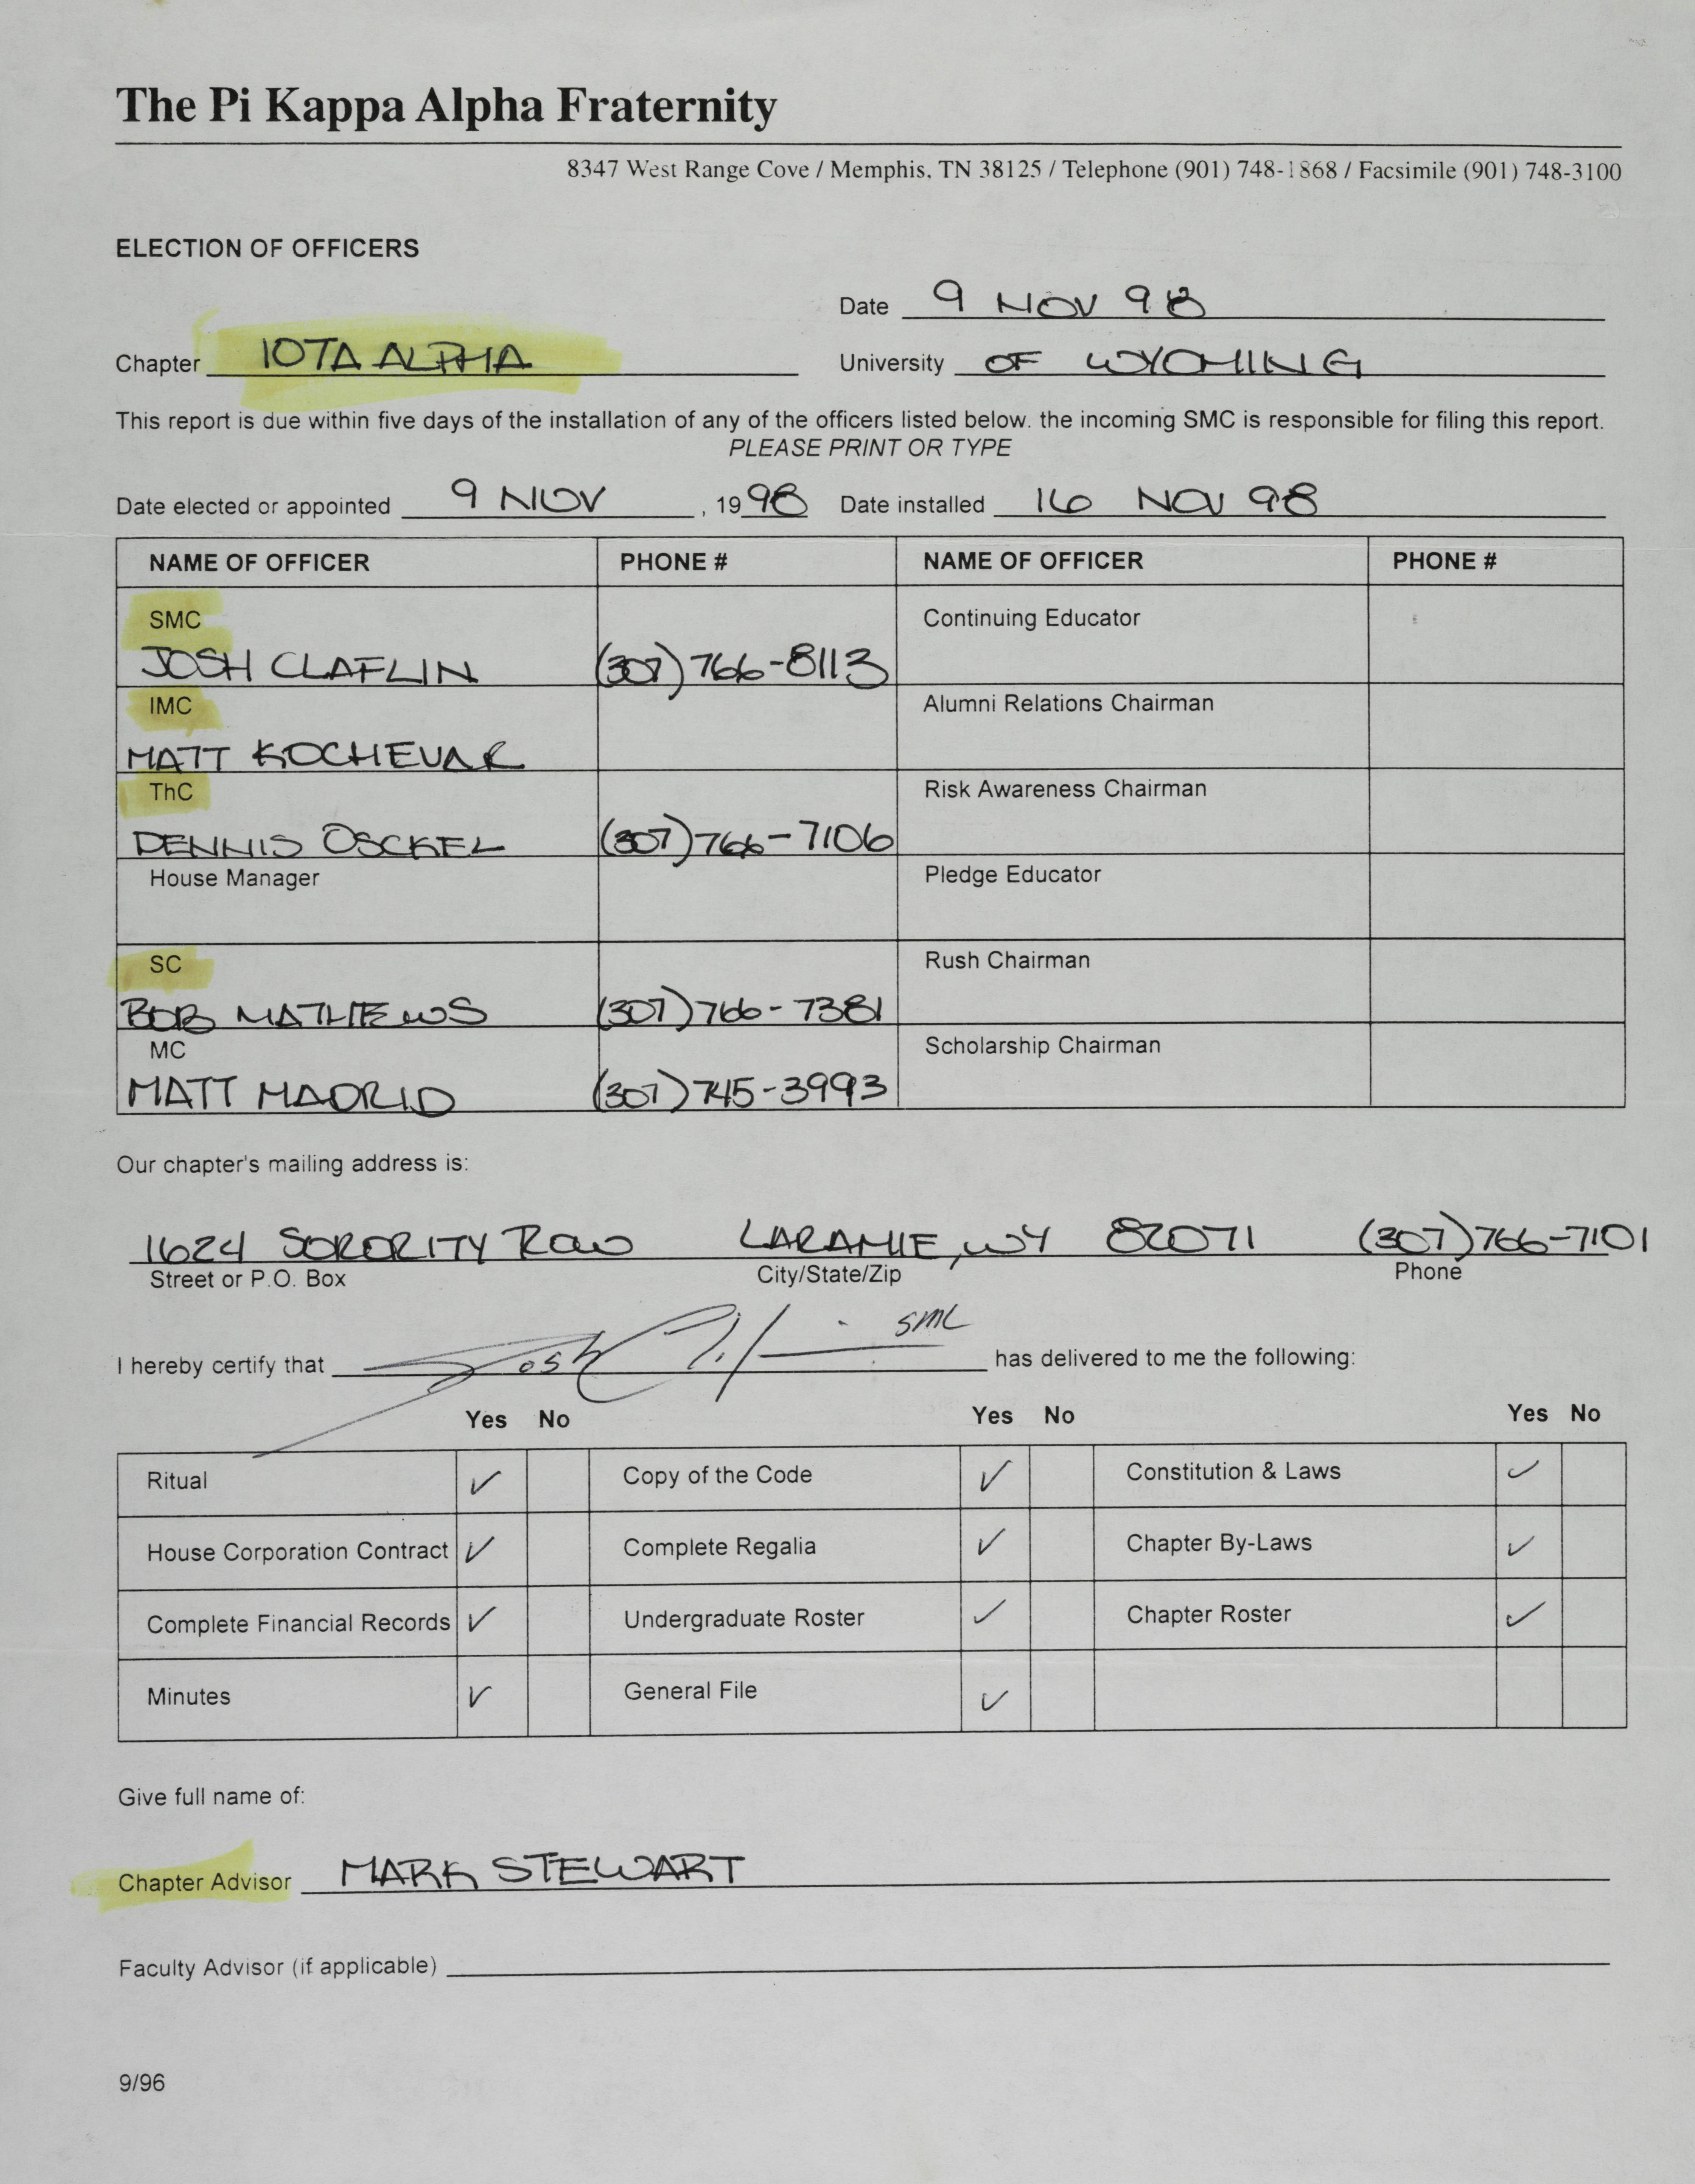 The Pi Kappa Alpha Fraternity
8347 West Range Cove / Memphis, TN 38125 / Telephone (901) 748-1868 / Facsimile (901) 748-3100
ELECTION OF OFFICERS
Date 9 NOV 98
Chapter IOTA ALPHA University OF WYOMING
This report is due within five days of the installation of any of the officers listed below. the incoming SMC is responsible for filing this report.
PLEASE PRINT OR TYPE
Date elected or appointed 9 NOV , 1998 Date installed 16 NOV 98
NAME OF OFFICER PHONE # NAME OF OFFICER PHONE #
SMC Continuing Educator
JOSH CLAFLIN (307) 766-8113
IMC Alumni Relations Chairman
MATT KOCHEVAR
ThC Risk Awareness Chairman
DENNIS OSCKEL (307) 766-7106
House Manager Pledge Educator
SC Rush Chairman
BOB MATHEWS (307) 766-7381
MC Scholarship Chairman
MATT MADRID (307) 745-3993
Our chapter's mailing address is:
1624 SORORITY ROW LARAMIE, WY 82071 (307) 766-7101
Street or P.O. Box City/State/Zip Phone
I hereby certify that Josh SMC has delivered to me the following:
Yes No Yes No Yes No
Ritual ✓ Copy of the Code ✓ Constitution & Laws ✓
House Corporation Contract ✓ Complete Regalia ✓ Chapter By-Laws ✓
Complete Financial Records ✓ Undergraduate Roster ✓ Chapter Roster ✓
Minutes ✓ General File ✓
Give full name of:
Chapter Advisor MARK STEWART
Faculty Advisor (if applicable)
9/96